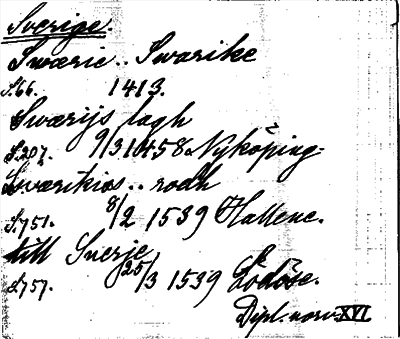 Sverige.
Sværic.. Svarike
S.66. 1413.
Sværijs lagh
S.207. 9/3 1458 Nyköping.
Sværikiss.. rodh
S.751. 8/2 1539 Hallene.
till Sverje
S.757. 25/3 1539 Lödöse.
Dipl. norv. XVI